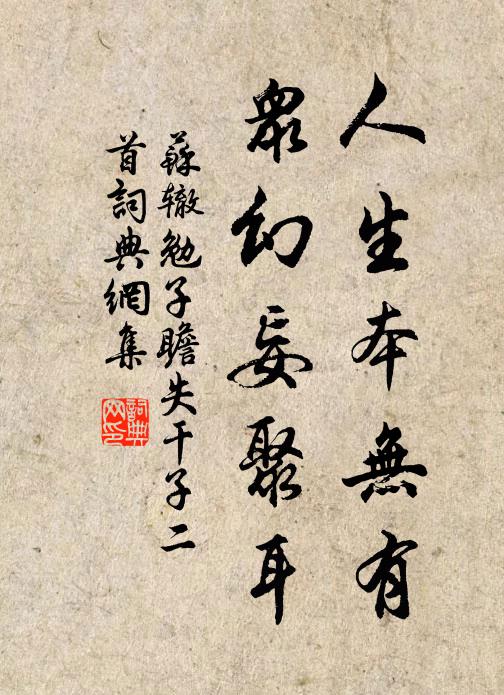 人生本無有
衆幻妄聚耳
蘇轍勉子瞻失干子二
首詞典網集
詞典
网印